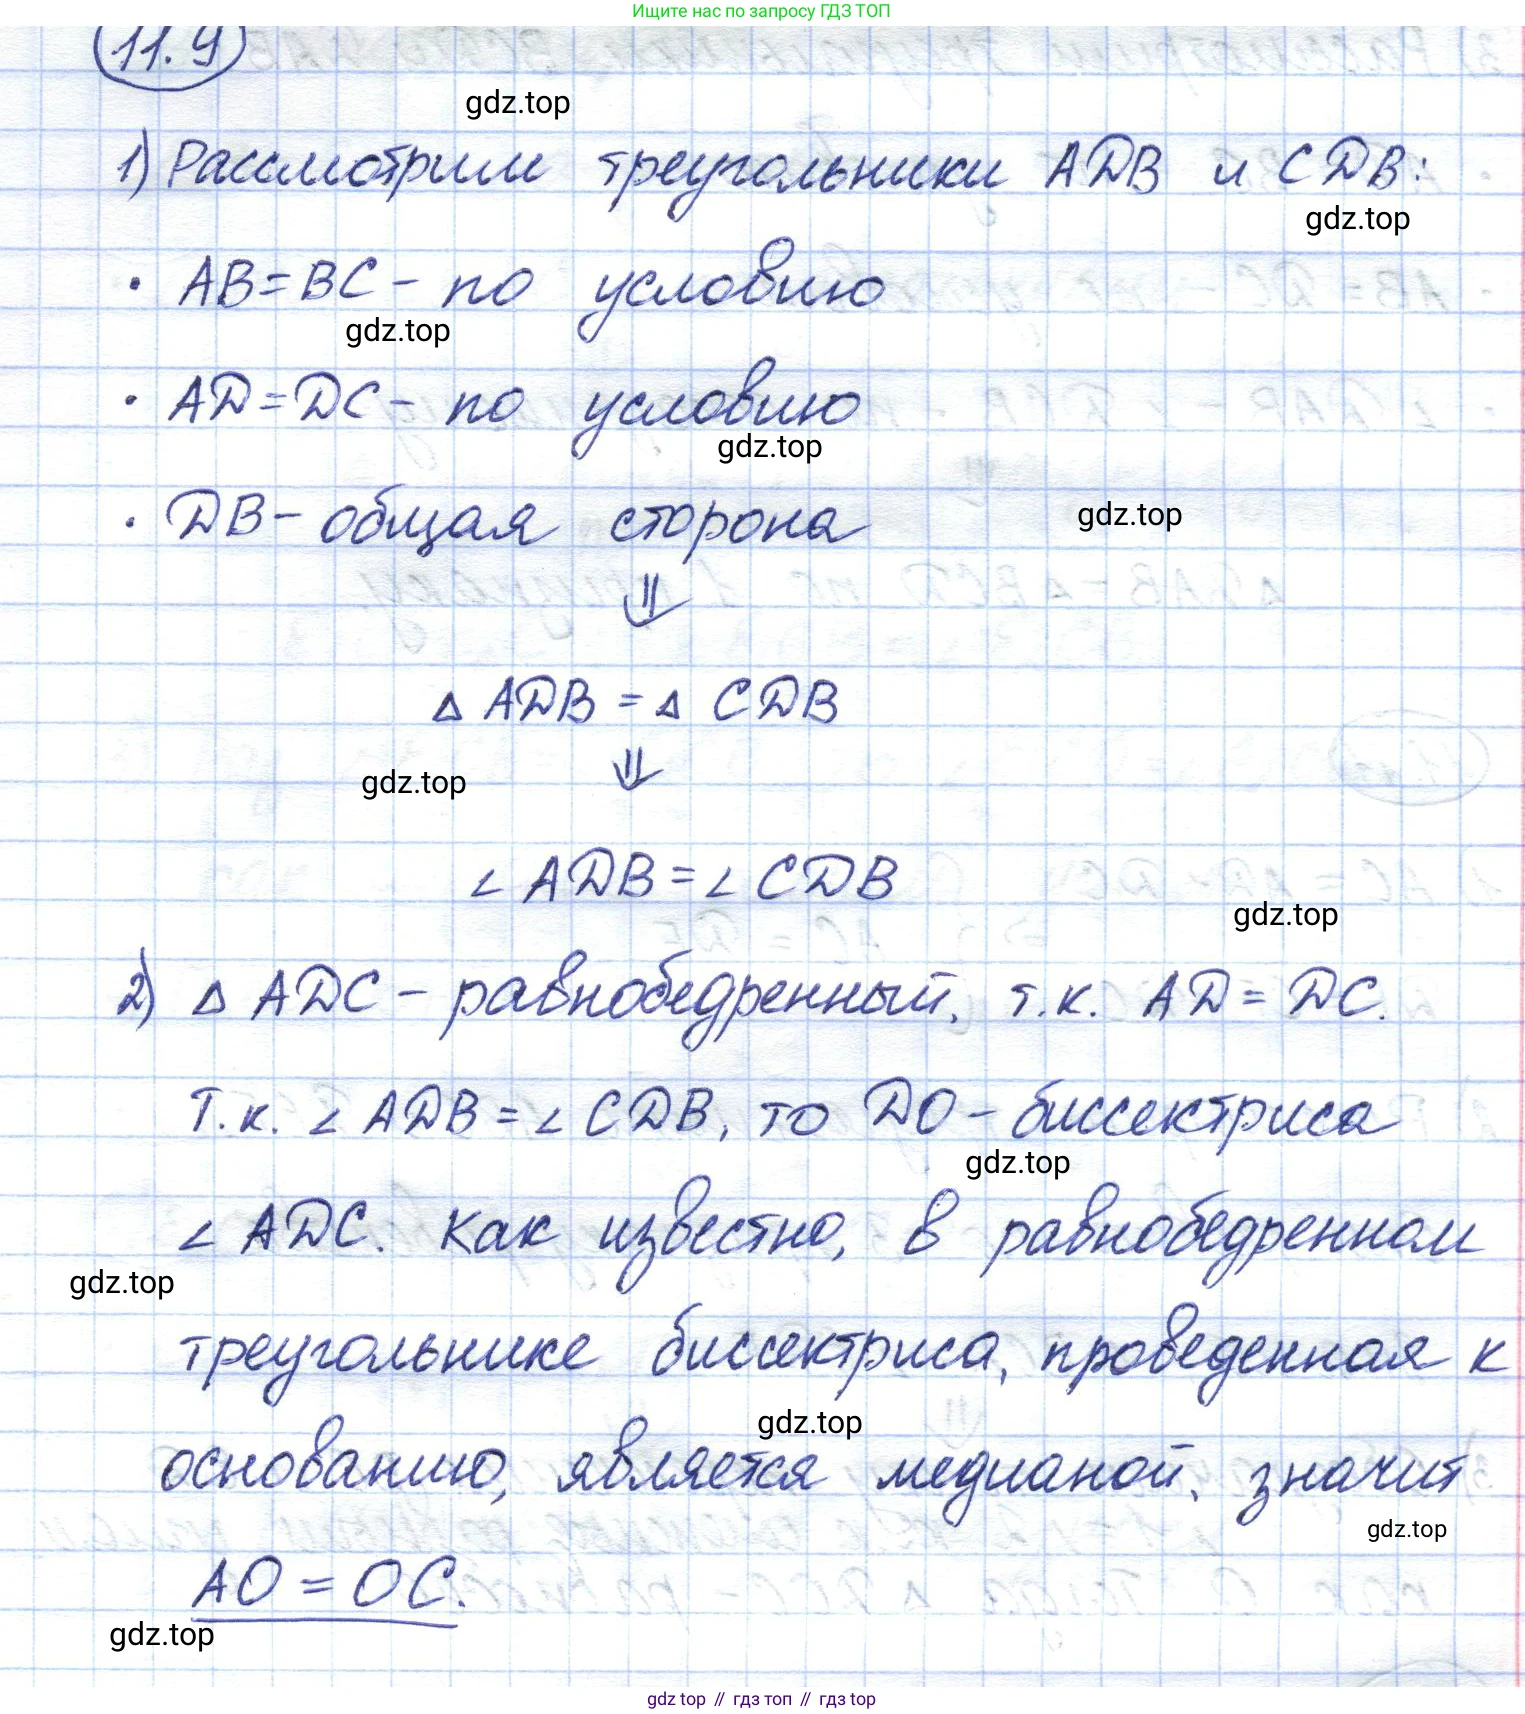 Ищите нас по запросу ГДЗ ТОП
11.9
gdz.top
1) Рассмотрим треугольники ADB и CDB:
gdz.top
• AB = BC - по условию
gdz.top
• AD = DC - по условию
gdz.top
• DB - общая сторона
gdz.top
⇓
△ ADB = △ CDB
⇓
gdz.top
∠ ADB = ∠ CDB
gdz.top
2) △ ADC - равнобедренный, т.к. AD = DC.
Т.к. ∠ ADB = ∠ CDB, то DO - биссектриса
gdz.top
∠ ADC. Как известно, в равнобедренном
gdz.top
треугольнике биссектриса, проведенная к
gdz.top
основанию, является медианой, значит
gdz.top
AO = OC.
gdz.top
gdz top // гдз топ // гдз top